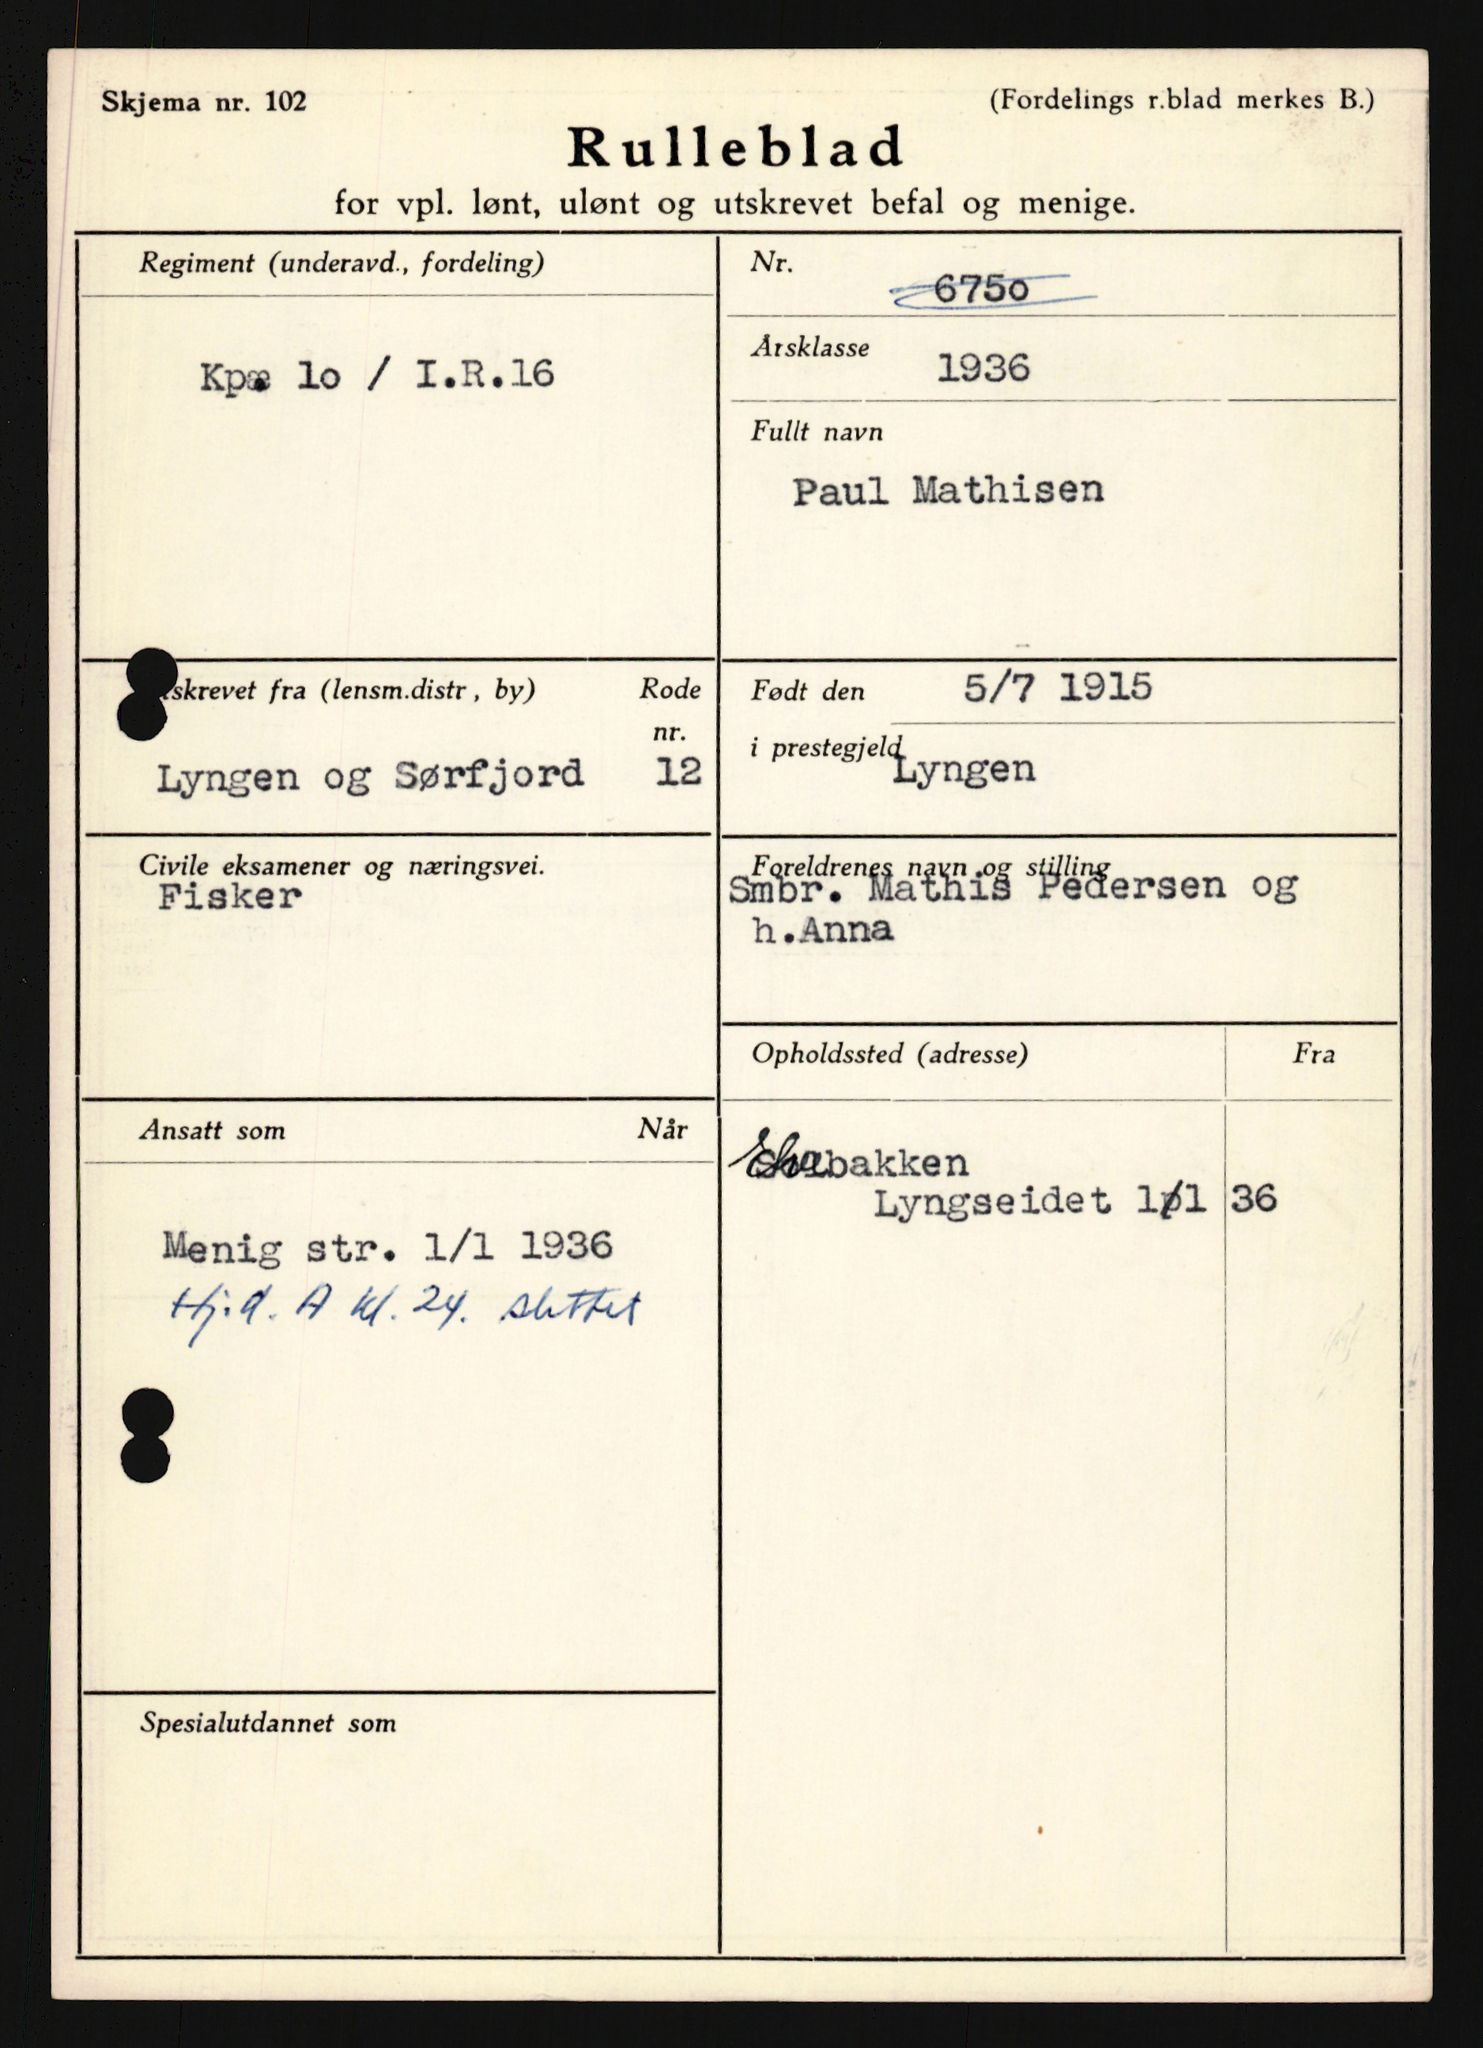 Skjema nr. 102
(Fordelings r.blad merkes B.)
Rulleblad
for vpl. lønt, ulønt og utskrevet befal og menige.
Regiment (underavd., fordeling)
Kpæ 1o / I.R.16
Nr.
675o
Årsklasse
1936
Fullt navn
Paul Mathisen
skrevet fra (lensm.distr, by)
Rode
nr.
Lyngen og Sørfjord 12
Født den
5/7 1915
i prestegjeld
Lyngen
Civile eksamener og næringsvei.
Fisker
Foreldrenes navn og stilling
Smbr. Mathis Pedersen og
h.Anna
Ansatt som
Når
Menig str. 1/1 1936
Hj.d. A kl. 24. slettet
Opholdssted (adresse)
Fra
bakken
Lyngseidet 1/1 36
Spesialutdannet som